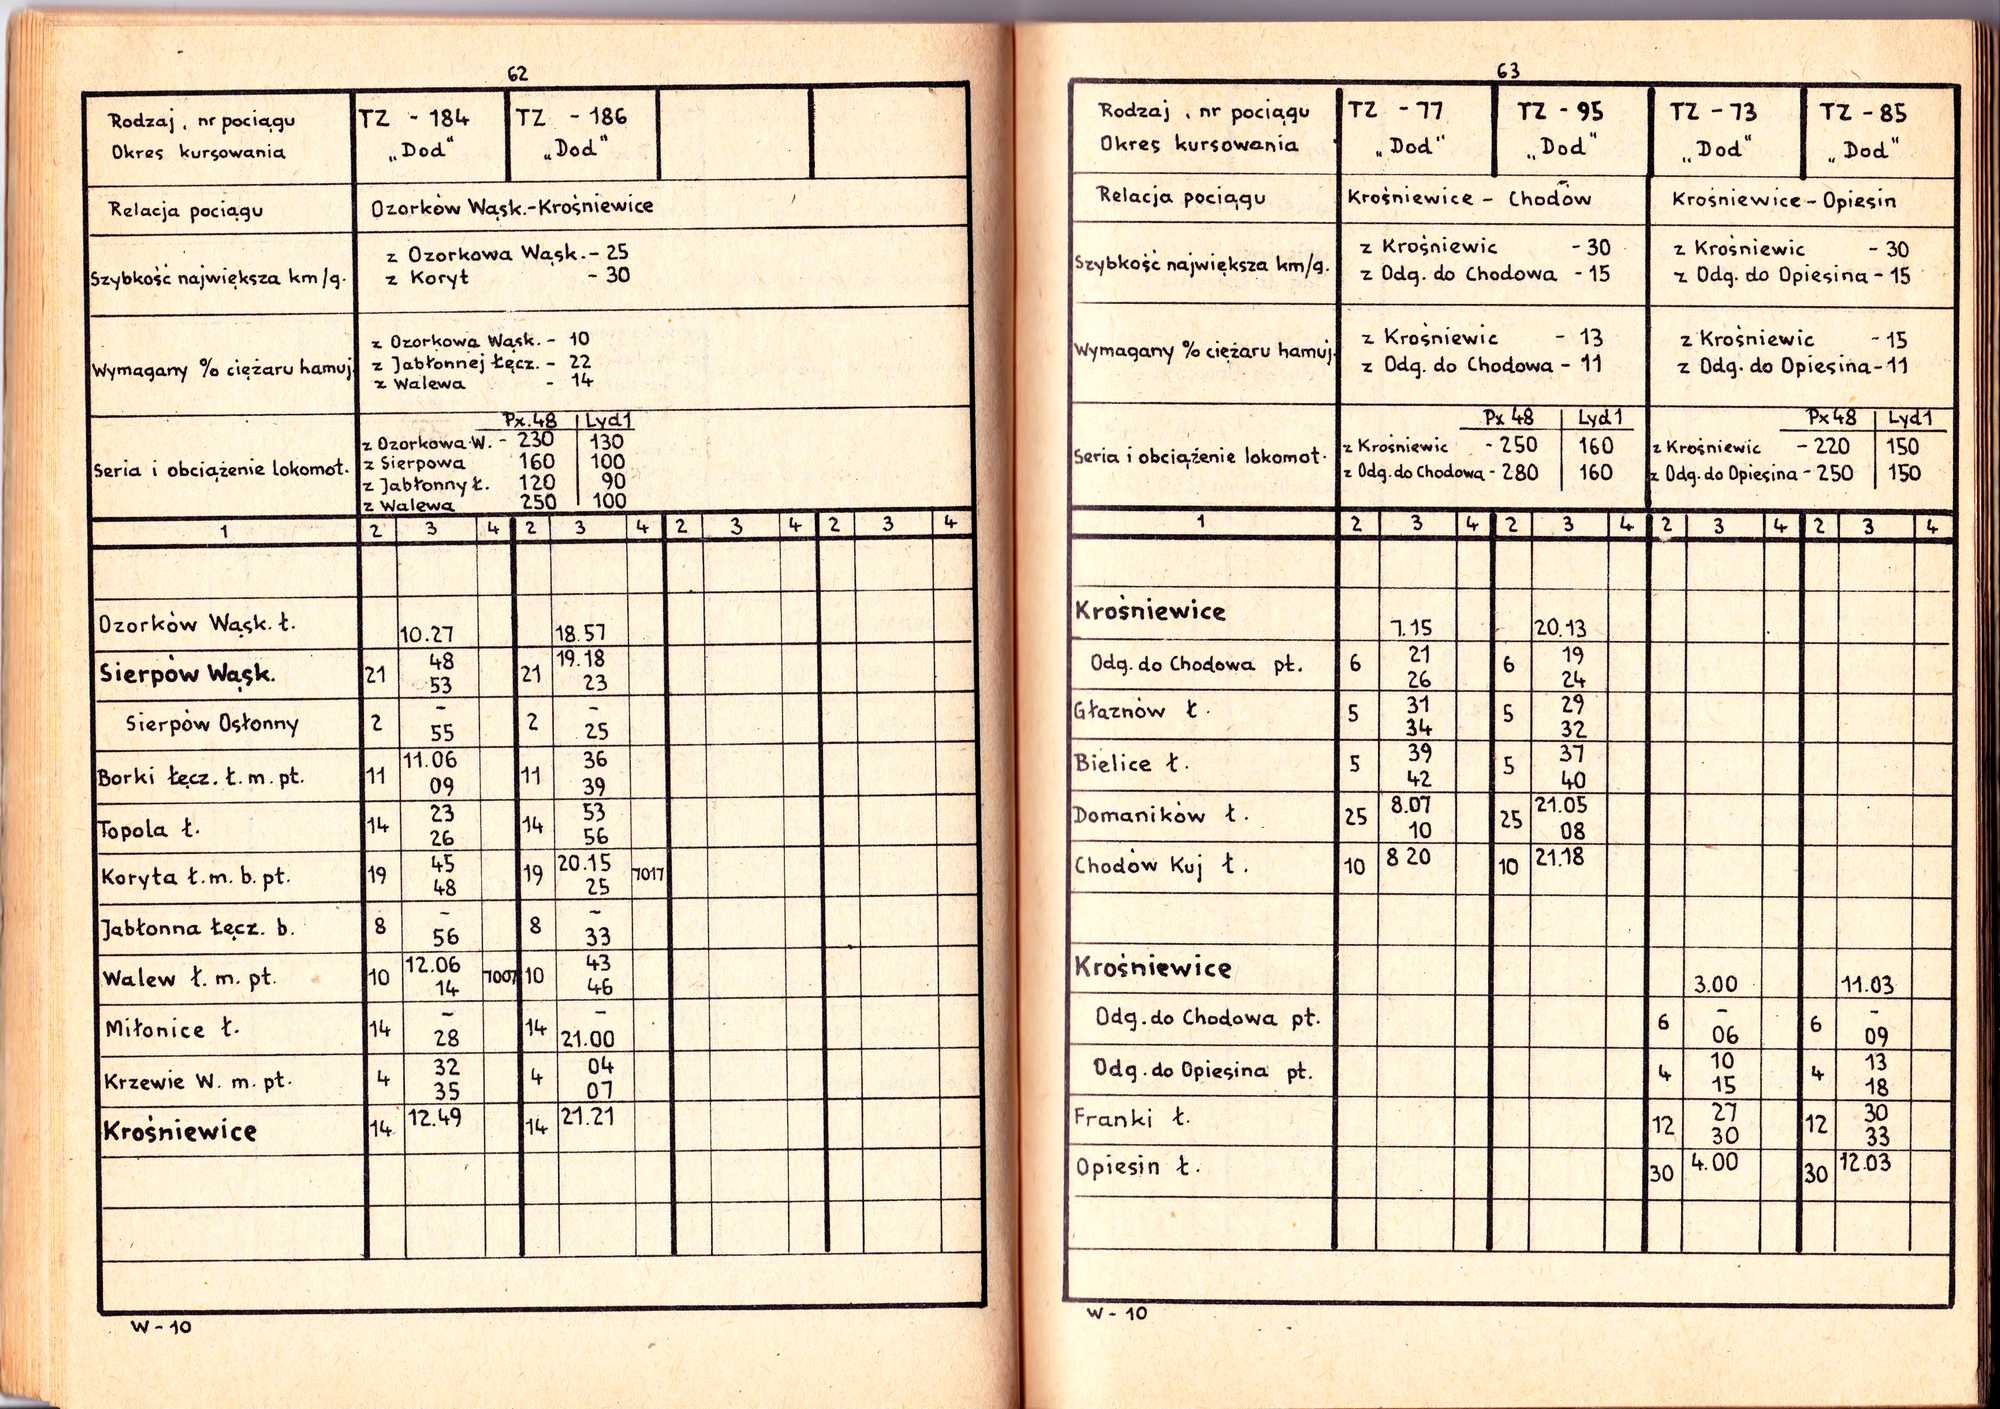 62
Rodzaj, nr pociągu TZ - 184 TZ - 186
Okres kursowania „Dod" „Dod"
Relacja pociągu Ozorków Wąsk.-Krośniewice
Szybkość największa km/g. z Ozorkowa Wąsk. - 25
z Koryt - 30
Wymagany % ciężaru hamuj. z Ozorkowa Wąsk. - 10
z Jabłonnej Łęcz. - 22
z Walewa - 14
Px.48 Lyd1
Seria i obciążenie lokomot. z Ozorkowa W. - 230 130
z Sierpowa 160 100
z Jabłonny Ł. 120 90
z Walewa 250 100
1 2 3 4 2 3 4 2 3 4 2 3 4
Ozorków Wąsk. ł. 10.27 18.57
Sierpów Wąsk. 21 48 21 19.18
53 23
Sierpów Osłonny 2 ~ 2 ~
55 25
Borki Łęcz. ł. m. pt. 11 11.06 11 36
09 39
Topola ł. 14 23 14 53
26 56
Koryta ł. m. b. pt. 19 45 19 20.15 7017
48 25
Jabłonna Łęcz. b. 8 ~ 8 ~
56 33
Walew ł. m. pt. 10 12.06 7007 10 43
14 46
Miłonice ł. 14 ~ 14 ~
28 21.00
Krzewie W. m. pt. 4 32 4 04
35 07
Krośniewice 14 12.49 14 21.21
W - 10
63
Rodzaj, nr pociągu TZ - 77 TZ - 95 TZ - 73 TZ - 85
Okres kursowania „Dod" „Dod" „Dod" „Dod"
Relacja pociągu Krośniewice - Chodów Krośniewice - Opiesin
Szybkość największa km/g. z Krośniewic - 30 z Krośniewic - 30
z Odg. do Chodowa - 15 z Odg. do Opiesina - 15
Wymagany % ciężaru hamuj. z Krośniewic - 13 z Krośniewic - 15
z Odg. do Chodowa - 11 z Odg. do Opiesina - 11
Px 48 Lyd1 Px 48 Lyd1
Seria i obciążenie lokomot. z Krośniewic - 250 160 z Krośniewic - 220 150
z Odg. do Chodowa - 280 160 z Odg. do Opiesina - 250 150
1 2 3 4 2 3 4 2 3 4 2 3 4
Krośniewice 7.15 20.13
Odg. do Chodowa pt. 6 21 6 19
26 24
Głaznów ł. 5 31 5 29
34 32
Bielice ł. 5 39 5 37
42 40
Domaników ł. 25 8.07 25 21.05
10 08
Chodów Kuj ł. 10 8 20 10 21.18
Krośniewice 3.00 11.03
Odg. do Chodowa pt. 6 ~ 6 ~
06 09
Odg. do Opiesina pt. 4 10 4 13
15 18
Franki ł. 12 27 12 30
30 33
Opiesin ł. 30 4.00 30 12.03
W - 10